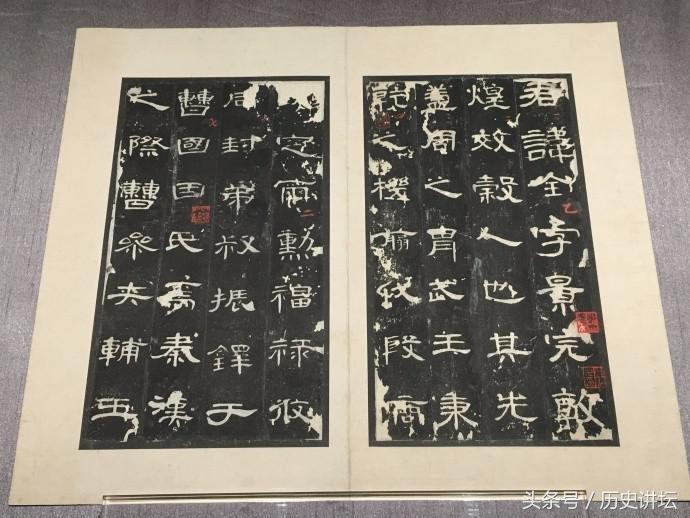 君諱全字景完敦
煌效穀人也其先
蓋周之胄武王秉
乾之機翦伐殷商
定爾勳福祿攸
同封弟叔振鐸于
曹國因氏焉秦漢
之際曹參夾輔王
头条号 / 历史讲坛